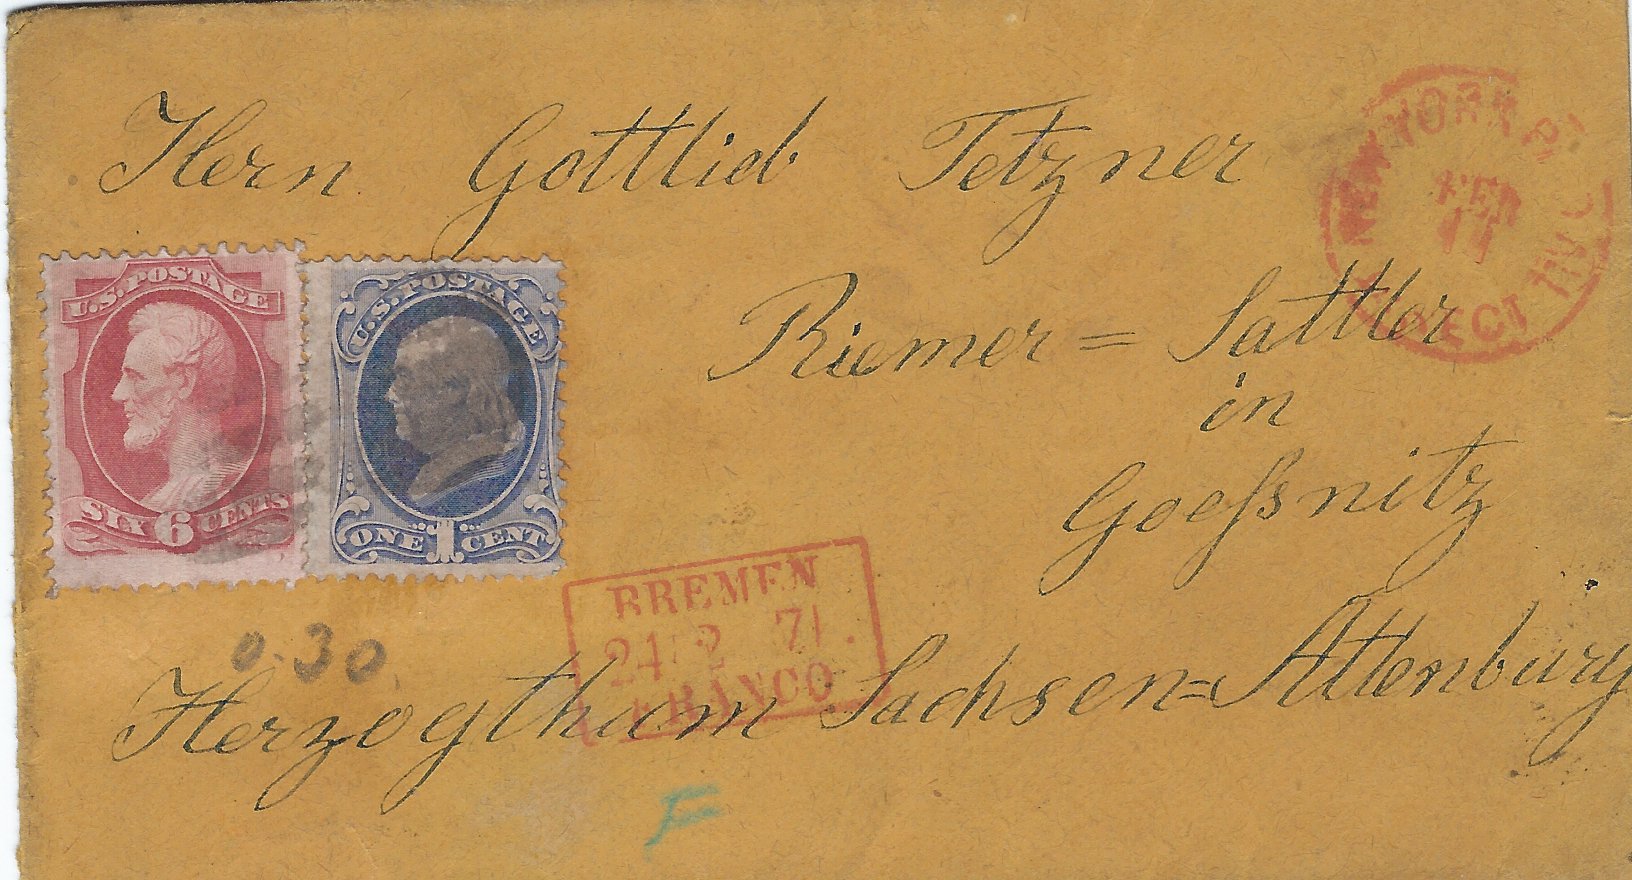 Herrn Gottlieb Tetzner
Riemer = Sattler
in
Goeßnitz
Herzogthum Sachsen=Altenburg
NEW YORK PAID ALL
DIRECT
FEB
U.S. POSTAGE
SIX 6 CENTS
U.S. POSTAGE
ONE 1 CENT
BREMEN
24 2 71.
FRANCO
0.30
F